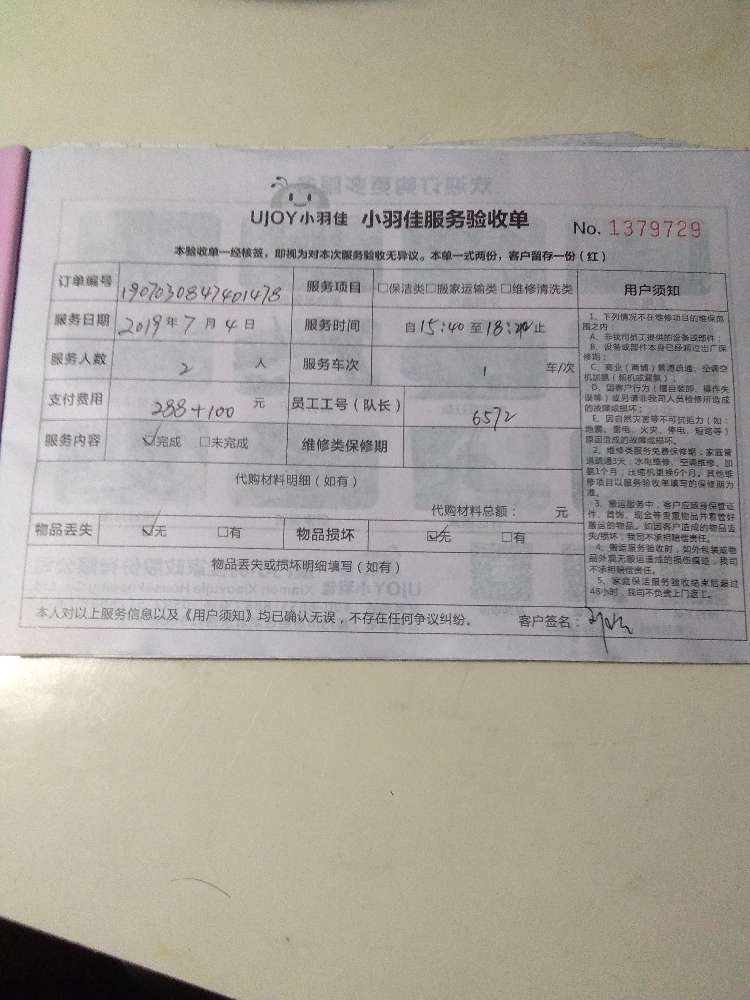 UJOY小羽佳 小羽佳服务验收单 No. 1379729
本验收单一经核签，即视为对本次服务验收无异议。本单一式两份，客户留存一份（红）
订单编号 1907030847401478 服务项目 □保洁类□搬家运输类□维修清洗类 用户须知
服务日期 2019年7月4日 服务时间 自15:40至18: 止
服务人数 2 人 服务车次 1 车/次
支付费用 288+100 元 员工工号（队长） 6572
服务内容 ☑完成 □未完成 维修类保修期
代购材料明细（如有）
代购材料总额： 元
物品丢失 ☑无 □有 物品损坏 ☑无 □有
物品丢失或损坏明细填写（如有）
1、下列情况不在维修项目的维保范
围之内：
A、非我司员工提供的设备或部件；
B、设备或部件本身已经超过出厂保
修期；
C、商业（商铺）管道疏通、空调空
机加氟（新机或漏氟）；
D、因客户行为（擅自装卸、操作失
误等）或另请非我公司人员检修所造成
的故障或损坏；
E、因自然灾害等不可抗拒力（如：
地震、雷电、火灾、停电、短路等）
原因造成的故障或损坏。
2、维修类服务免费保修期：家庭管
道疏通3天；水电维修、空调维修、加
氟1个月；压缩机更换6个月。其他维
修项目以服务验收单填写的保修期为
准。
3、搬运服务中，客户应随身保管证
件、首饰、现金等贵重物品并看管好
搬运的物品。如因客户造成的物品丢
失/损坏，我司不承担赔偿责任。
4、搬运服务验收时，如外包装或物
品外观无搬运造成的损伤痕迹，我司
不承担赔偿责任。
5、家庭保洁服务验收结束后超过
48小时，我司不负责上门返工。
本人对以上服务信息以及《用户须知》均已确认无误，不存在任何争议纠纷。 客户签名：